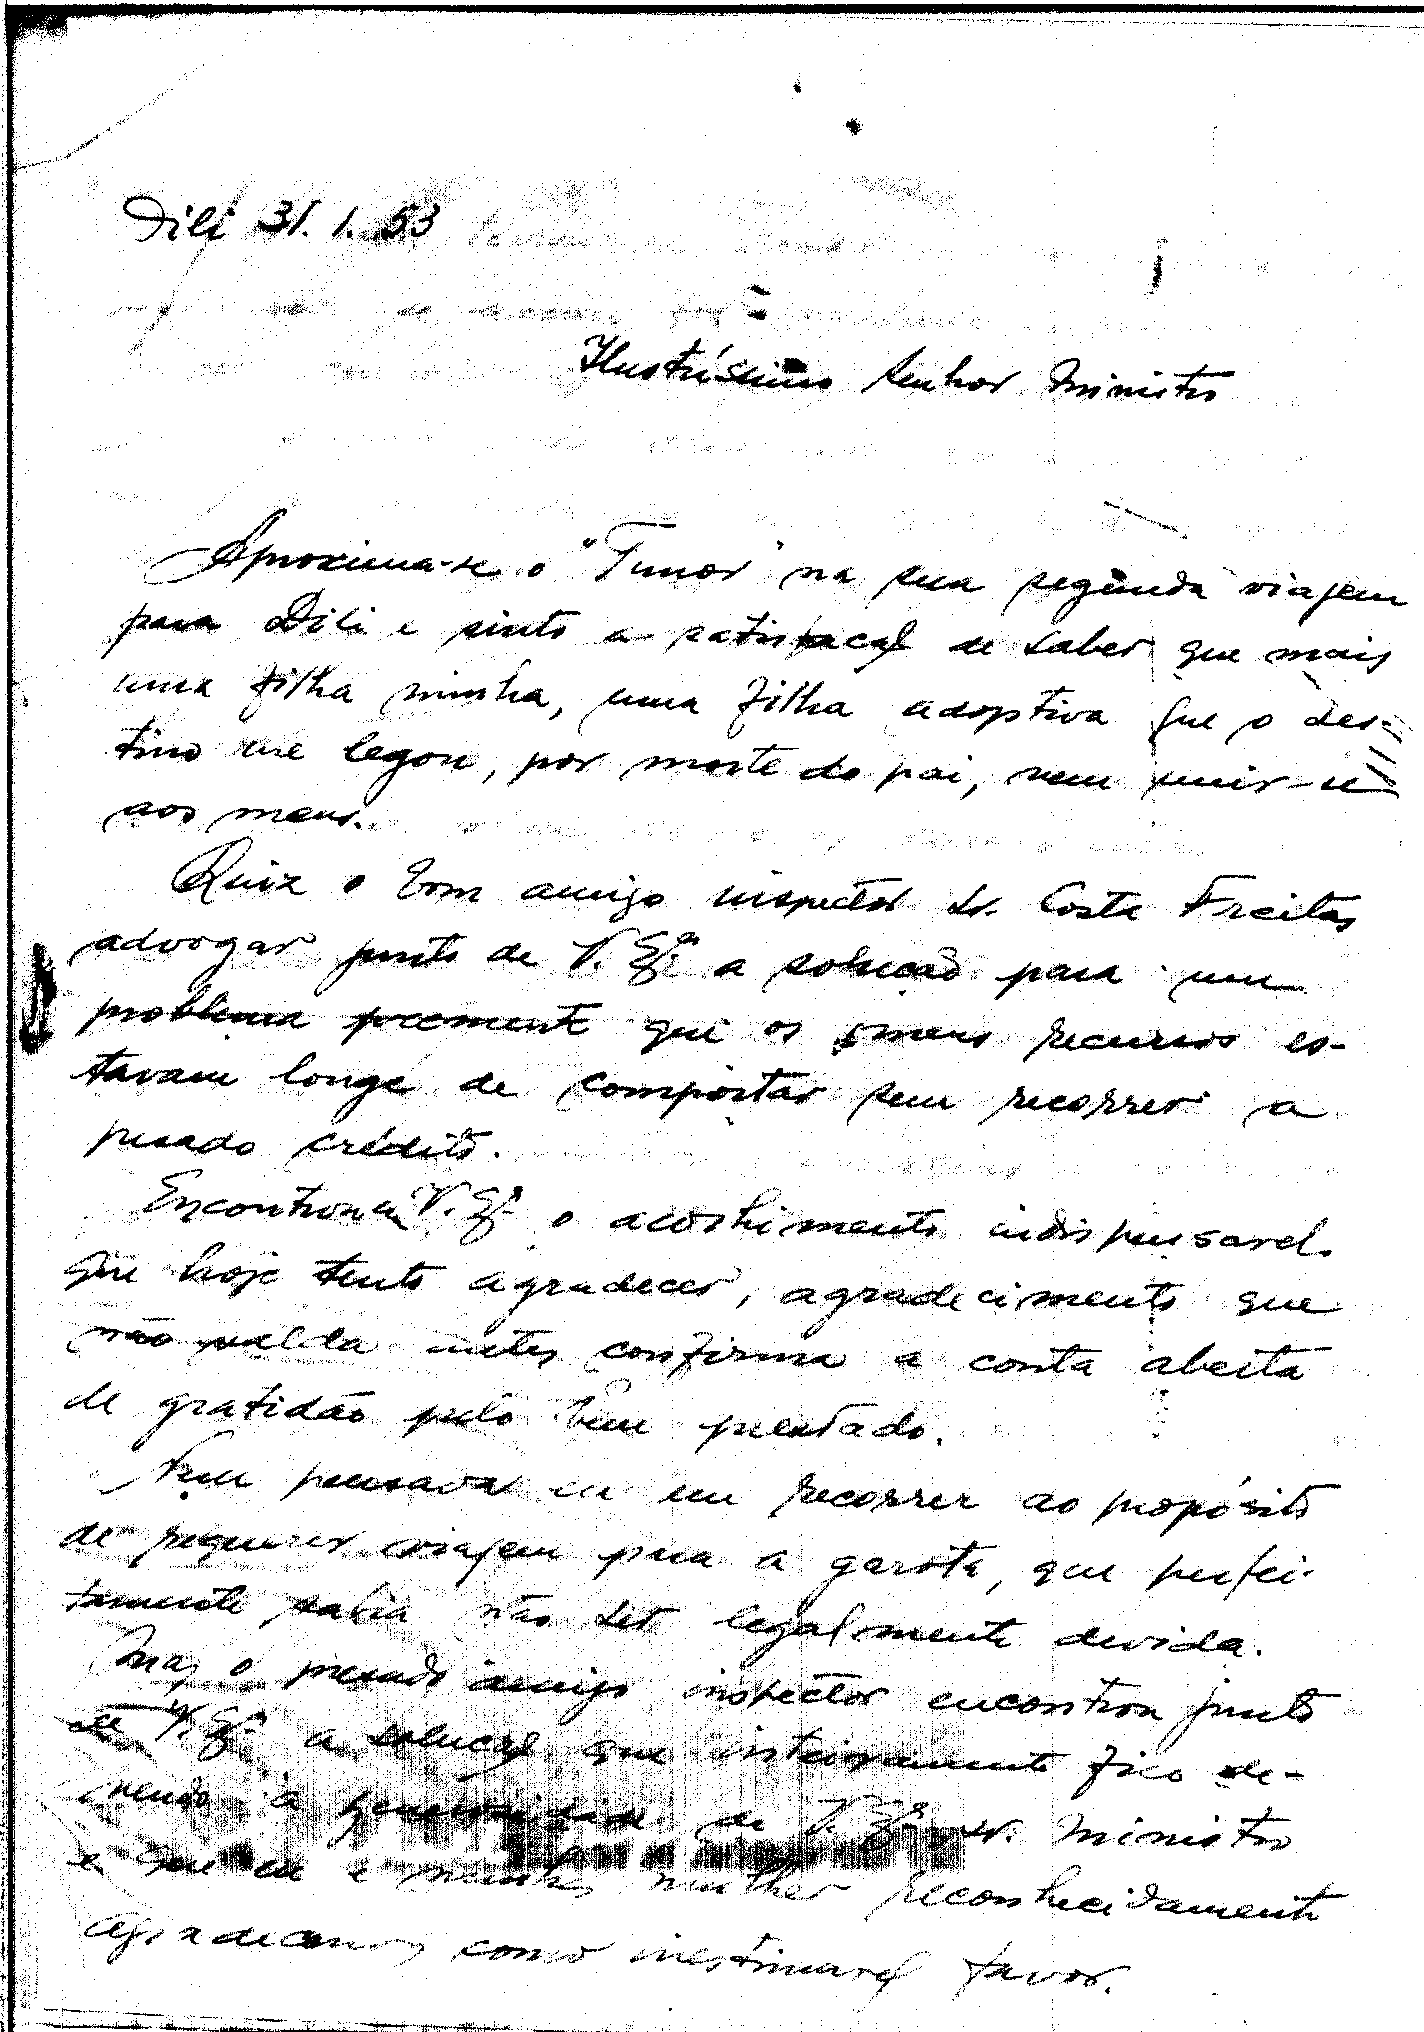 Dili 31.1.53
Ilustríssimo Senhor Ministro
Aproxima-se o "Timor" na sua segunda viajem
para Dili e sinto a satisfação de saber que mais
uma filha minha, uma filha adoptiva que o des-
tino me legou, por morte do pai, vem unir-se
aos meus.
Quiz o bom amigo inspector Sr. Costa Freitas
advogar junto de V. Exª a solução para um
problema premente que os meus recursos es-
tavam longe de comportar sem recorrer a
pesado crédito.
Encontrou em V. Exª o acolhimento indispensavel
que hoje tento agradecer, agradecimento que
não salda antes confirma a conta aberta
de gratidão pelo bem prestado.
Nem pensava eu em recorrer ao propósito
de requerer viajem para a garota, que perfei-
tamente sabia não ser legalmente devida.
Mas o prezado amigo inspector encontrou junto
de V. Exª a solução que inteiramente fico de-
vendo à generosidade de V. Exª sr. Ministro
e que eu e minha mulher reconhecidamente
agradecemos como inestimavel favor.